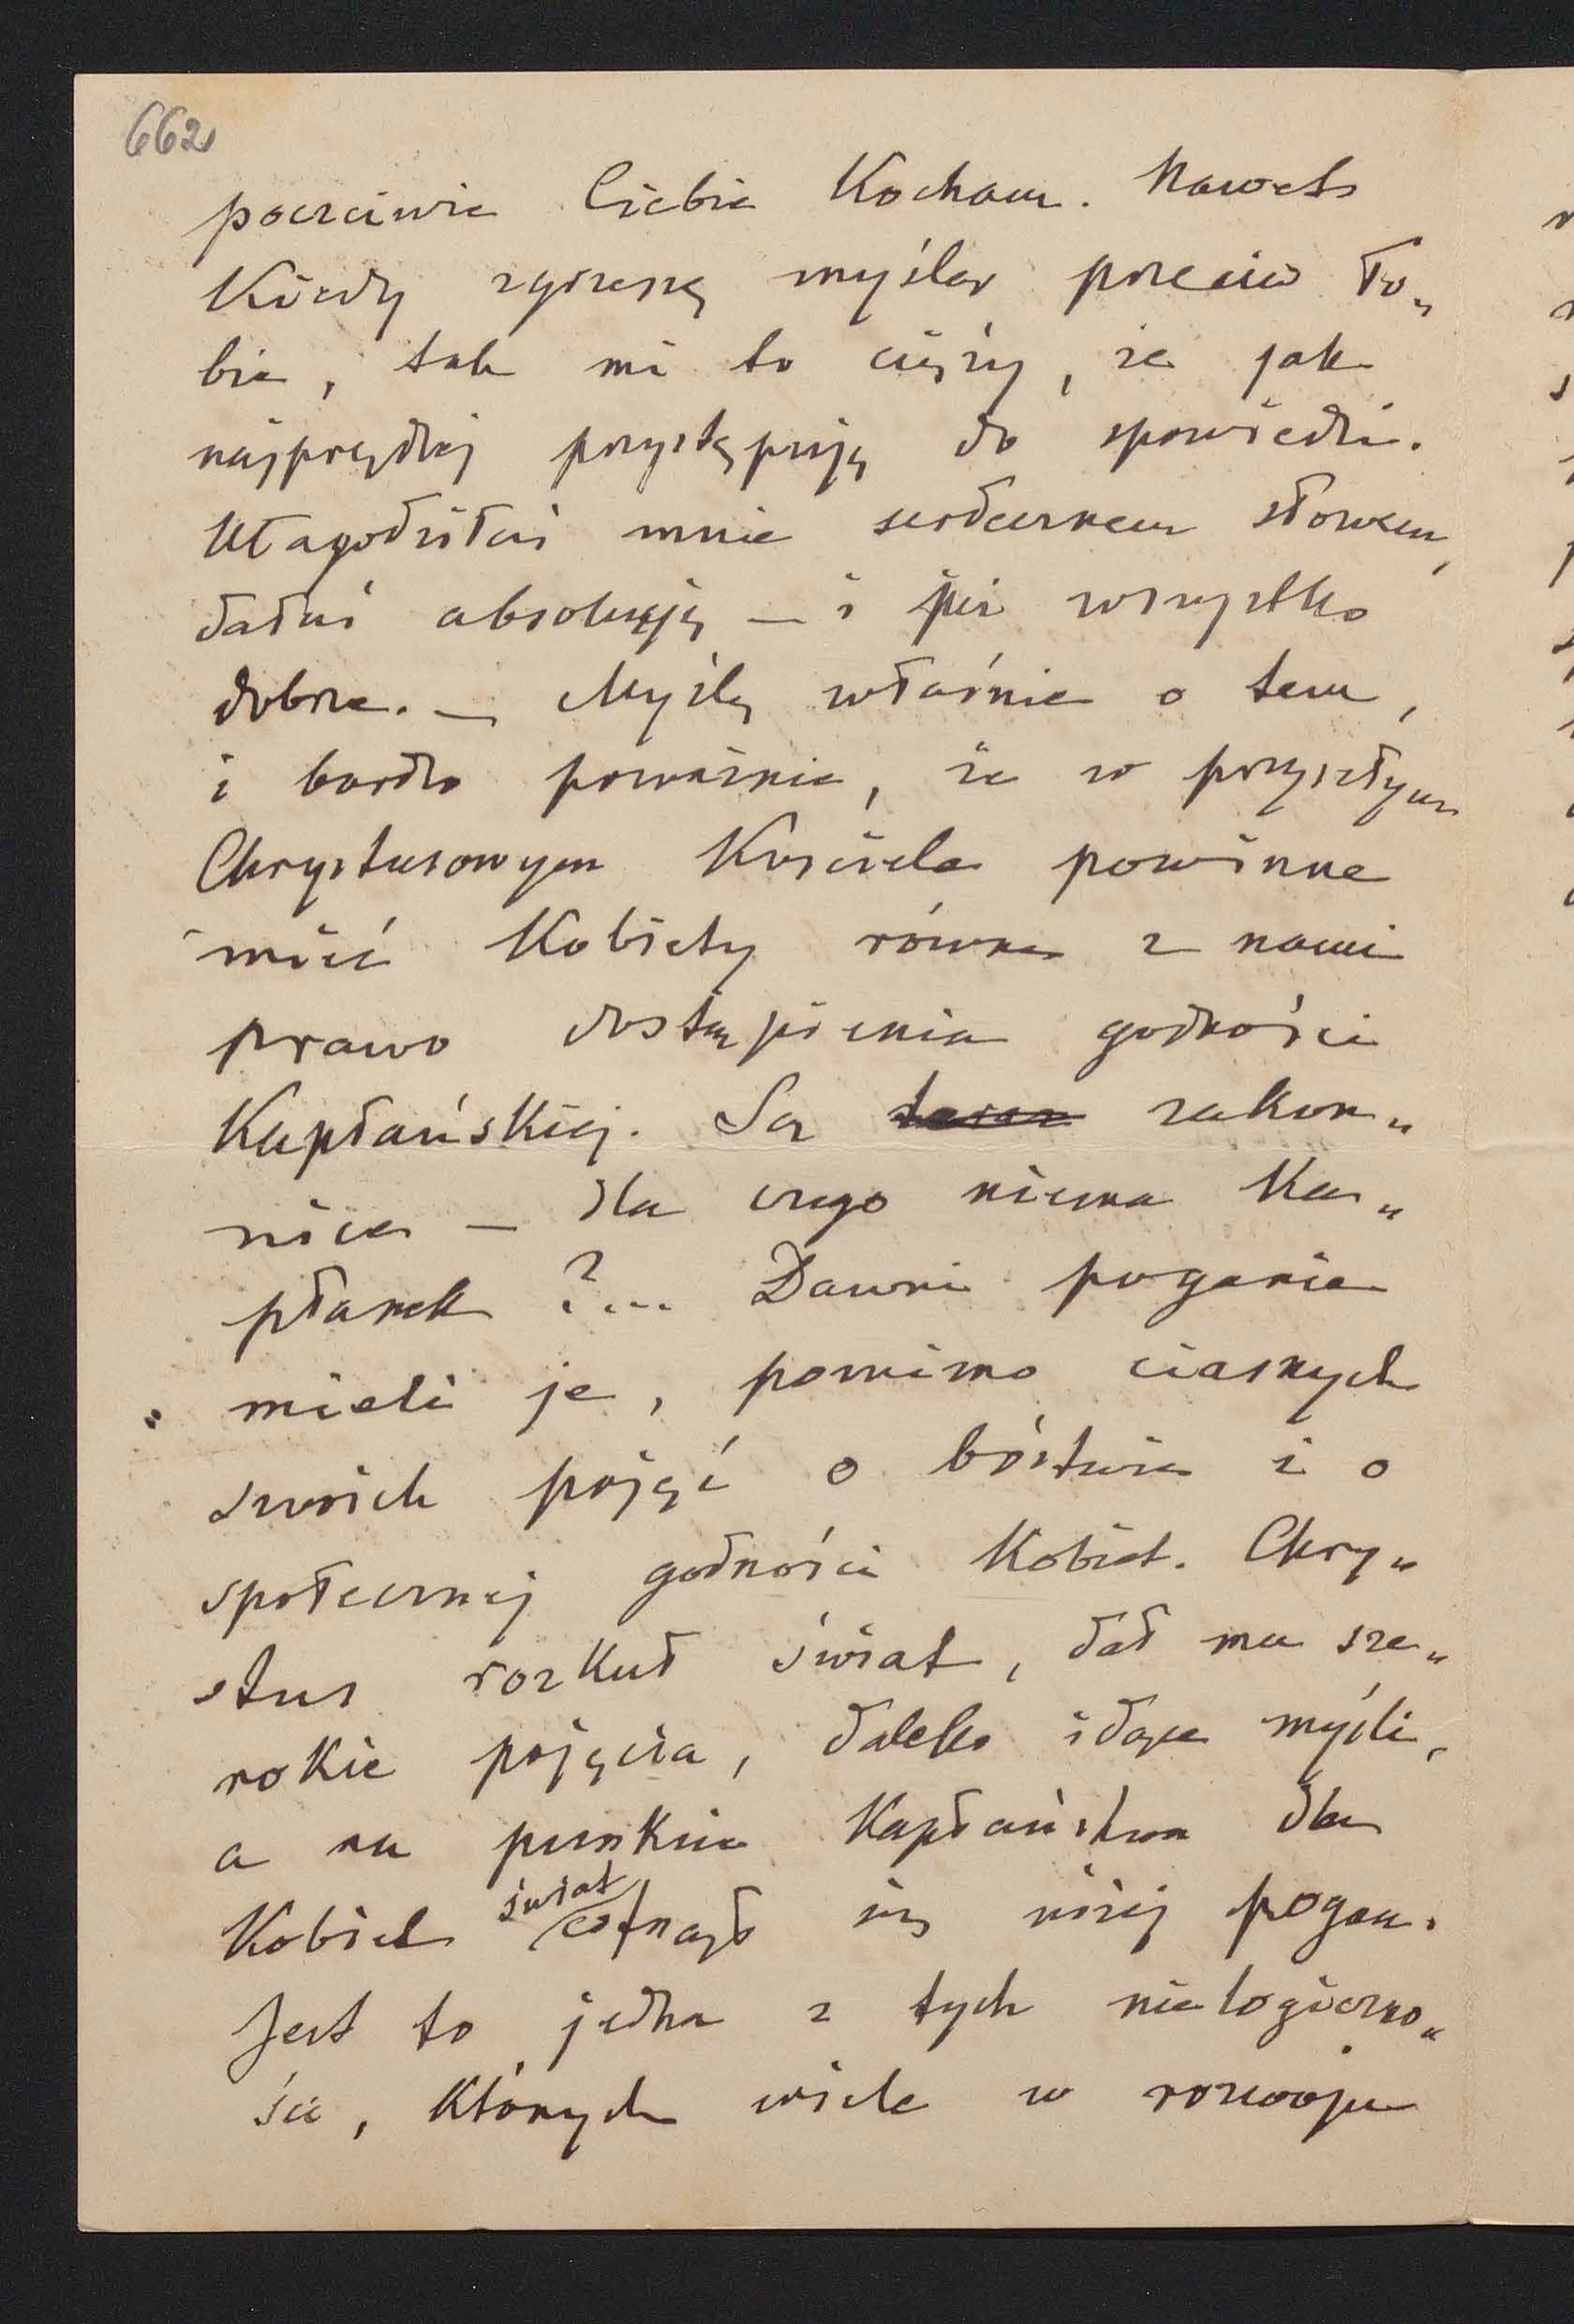 662
poczciwie Ciebie Kocham. Nawet
Kiedy zgrzeszę myślą przeciw To„
bie, tak mi to cięży, że jak
najprędzej przystępuję do spowiedzi.
Ułagodziłaś mnie serdecznem słowem,
dałaś absolucję — i już wszystko
dobrze. — Myślę właśnie o tem,
i bardzo poważnie, że w przyszłym
Chrystusowym Kościele powinne
mieć Kobiety równe z nami
prawo dostąpienia godności
Kapłańskiej. Są zakon„
nice — dla czego niema Ka„
płanek ?... Dawni poganie
mieli je, pomimo ciasnych
swoich pojęć o bóstwie i o
społecznej godności Kobiet. Chry„
stus rozkuł świat, dał mu sze„
rokie pojęcia, daleko idące myśli,
a na punkcie Kapłaństwa dla
Kobiet świat cofnął się niżej pogan.
Jest to jedna z tych nielogiczno„
ści, Których wiele w rozwoju